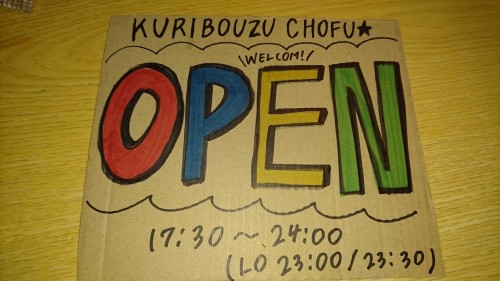 KURIBOUZU CHOFU★
\WELCOM!/
OPEN
17:30〜24:00
(LO 23:00/23:30)